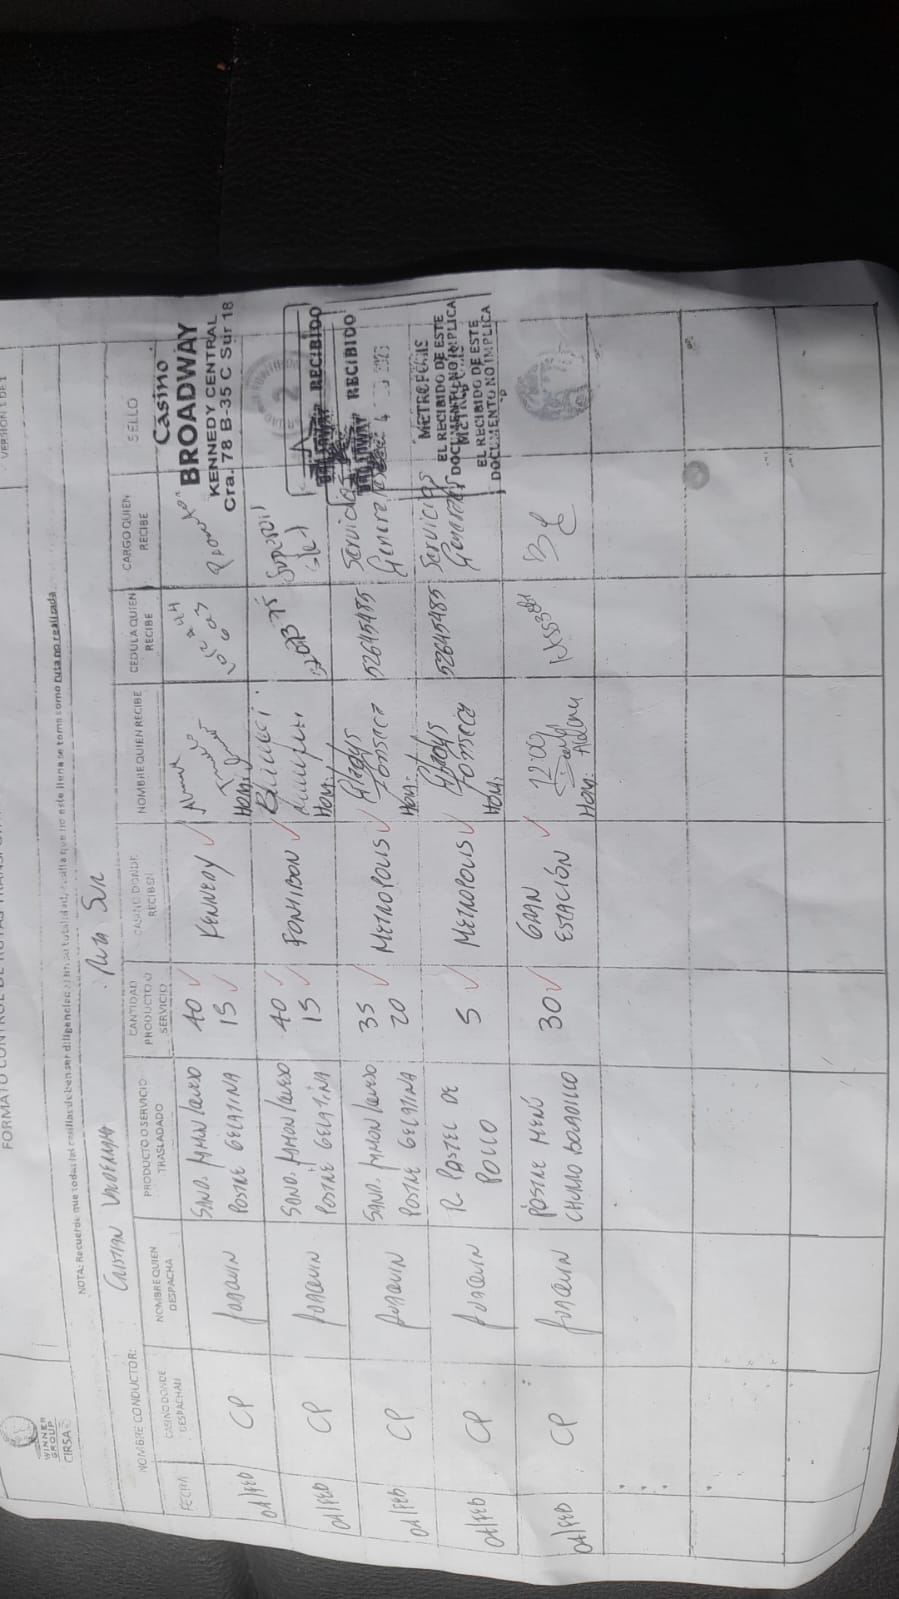 VERSIÓN 1 DE 1
WINNER
GROUP
CIRSA
NOTA: Recuerde que todas las casillas deben ser diligenciadas en su totalidad, casilla que no este llena se toma como ruta no realizada
NOMBRE CONDUCTOR: CRISTIAN Ruta SUR
FECHA
CASINO DONDE
DESPACHAN
NOMBRE QUIEN
DESPACHA
PRODUCTO O SERVICIO
TRASLADADO
CANTIDAD
PRODUCTO O
SERVICIO
CASINO DONDE
RECIBEN
NOMBRE QUIEN RECIBE
CEDULA QUIEN
RECIBE
CARGO QUIEN
RECIBE
SELLO
04/FEB CP JOAQUIN SAND. JAMON/QUESO 40 KENNEDY
POSTRE GELATINA 15 HORA:
Casino
BROADWAY
KENNEDY CENTRAL
Cra. 78 B-35 C Sur 18
04/FEB CP JOAQUIN SAND. JAMON/QUESO 40 FONTIBON
POSTRE GELATINA 15 HORA:
RECIBIDO
04/FEB CP JOAQUIN SAND. JAMON/QUESO 35 METROPOLIS Gladys 52645485 Servicios
POSTRE GELATINA 20 HORA: FONSECA Generales
BROADWAY RECIBIDO
04/FEB CP JOAQUIN R. PASTEL DE 5 METROPOLIS Gladys 52645485 Servicios
POLLO HORA: FONSECA Generales
METROPOLIS
EL RECIBIDO DE ESTE
DOCUMENTO NO IMPLICA
EL RECIBIDO DE ESTE
DOCUMENTO NO IMPLICA
04/FEB CP JOAQUIN POSTRE MENÚ 30 GRAN 12:00
CHURRO ESTACIÓN HORA: